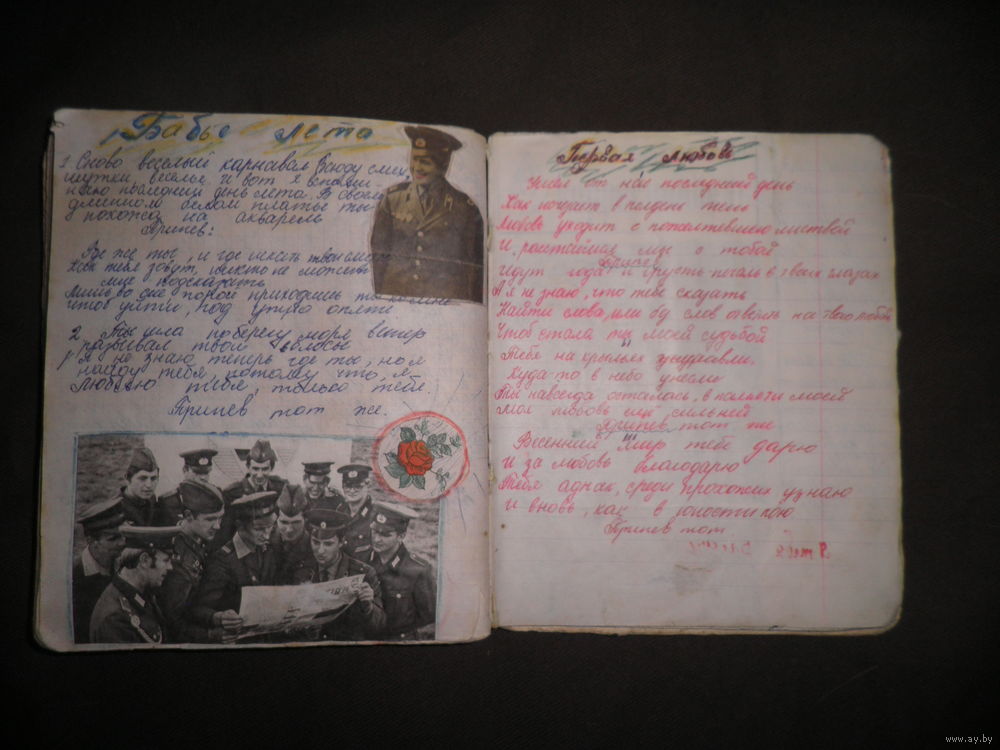 Бабье лето
1 Снова веселый карнавал всюду смех,
шутки, веселье и вот я вспоми-
наю последний день лета. В своем
длинном белом платье ты
похожа на акварель
Припев:
Где же ты, и где искать твои следы
Как тебя зовут, никто не может
мне подсказать
Лишь во сне порой приходишь ты ко мне
чтоб уйти, под утро опять
2. Ты шла по берегу моря ветер
развивал твои
Я не знаю теперь где ты, но я
найду тебя, потому что, я
люблю тебя, только тебя.
Припев тот же.
Первая любовь
от нас последний день
Как исчезает в полдень тень
Любовь уходит с пожелтевшею листвой
И расстаёмся мы с тобой
Припев
Идут года и грусть печаль в твоих глазах
А я не знаю, что тебе сказать
Найти слова, или без слов ответить на твою любовь
Чтоб стала ты моей судьбой
2
Тебя на крыльях
Куда-то в небо унесли
Ты навсегда осталась, в памяти моей
Моя любовь ещё сильней
Припев тот же
3
Весенний мир тебе дарю
И за любовь благодарю
Тебя однак, среди прохожих узнаю
И вновь, как в юности пою
Припев тот.
Я тебя
www.ay.by